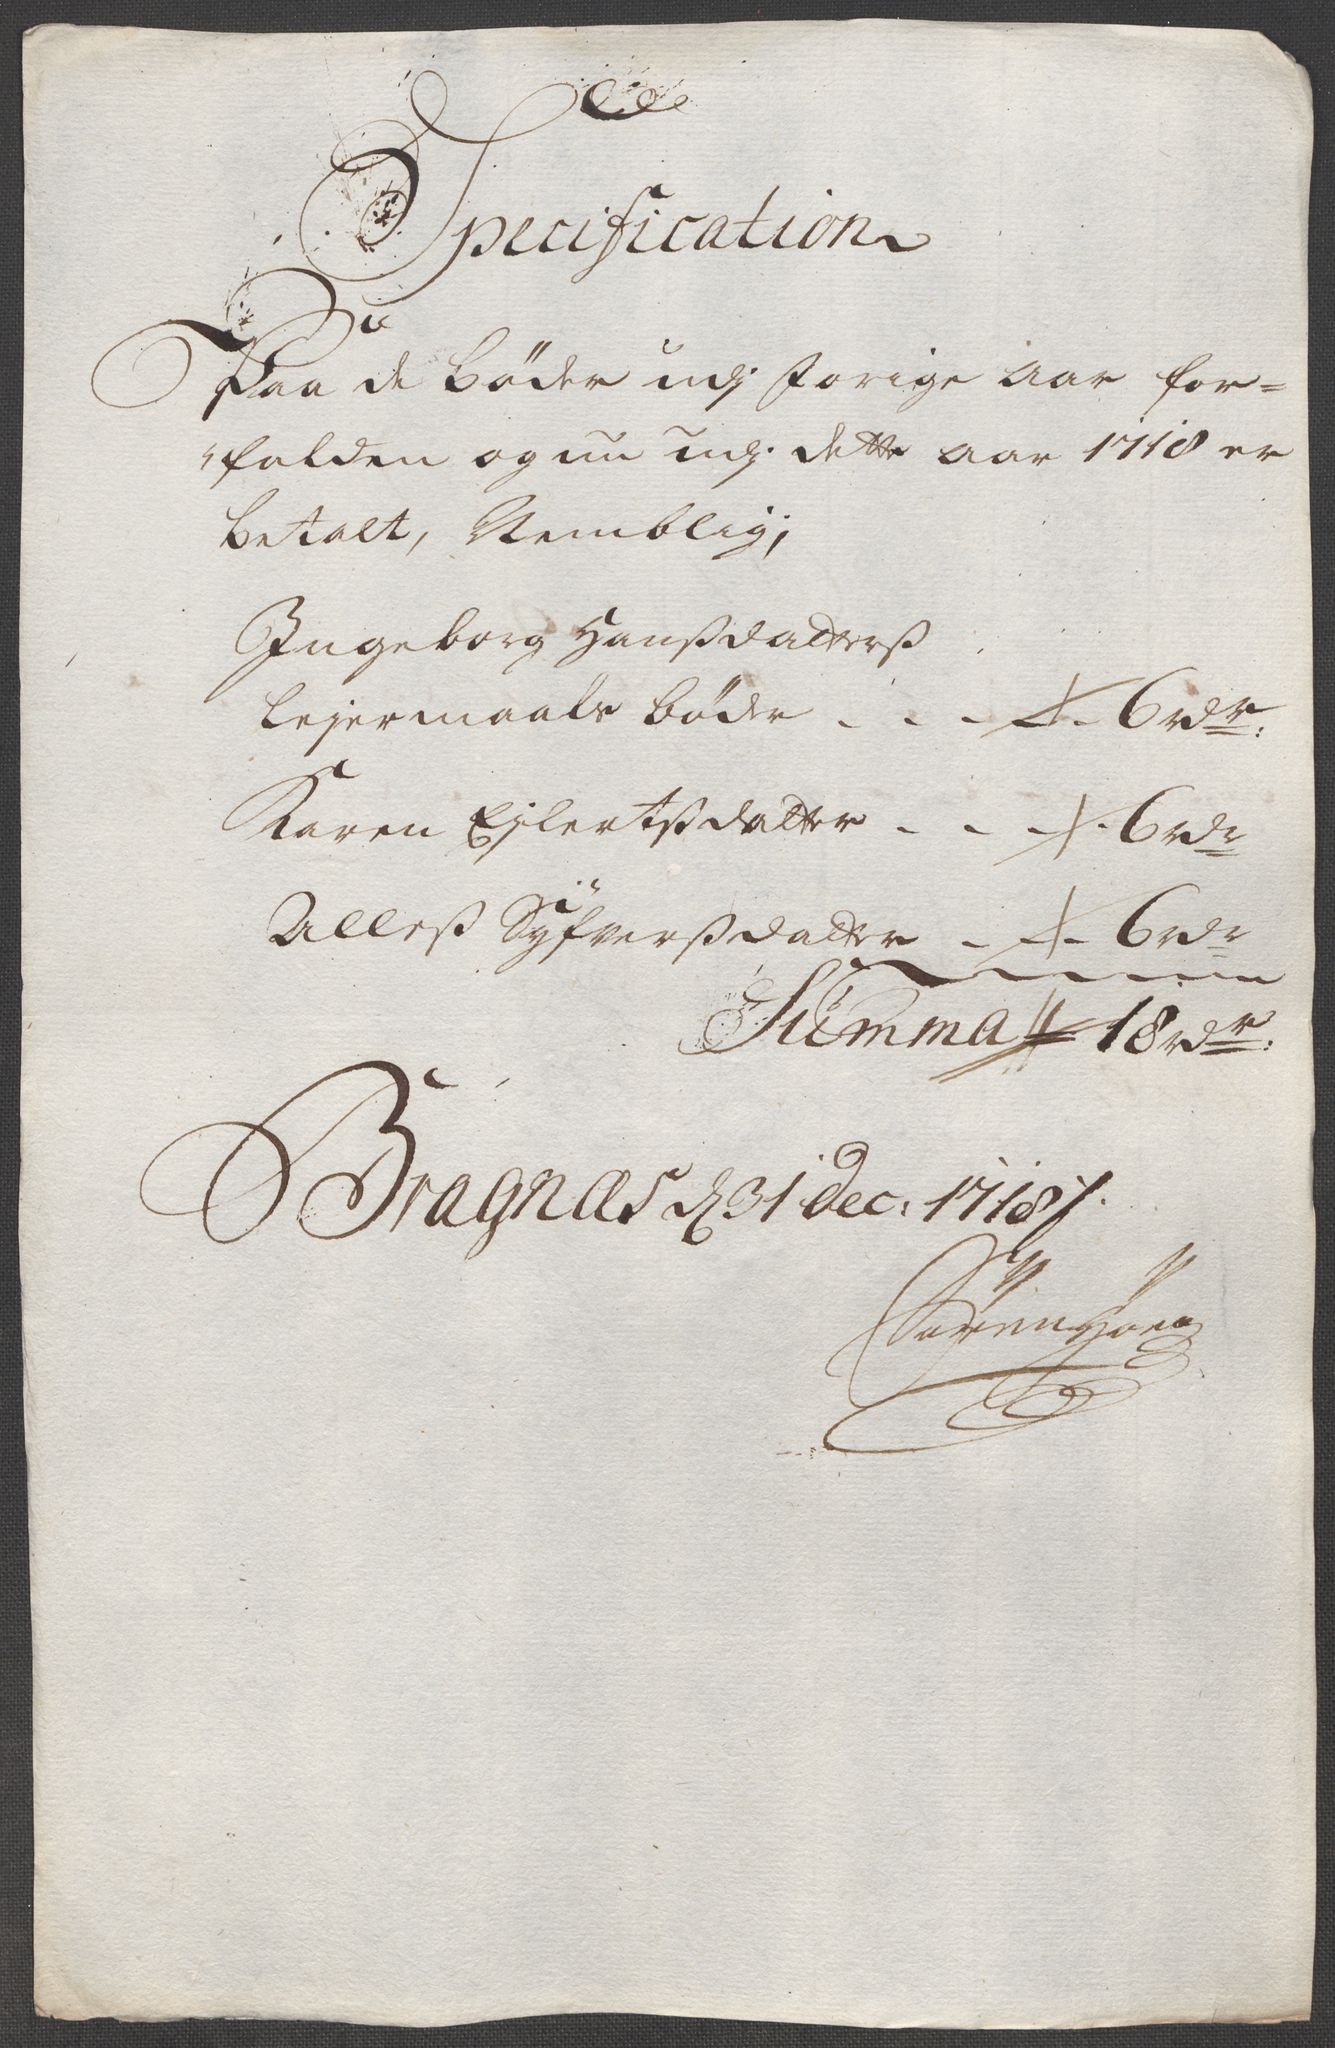 Specification
Paa de bøder udj forige aar for=
falden og nu udj dette aar 1718 er
betalt, Nemblig;
Ingeborg Hanßdatterß
lejermaals bøder . . . 6 rdr:
Karen Ejlertßdatter . . . 6 rdr
Alleß Syfverßdatter . . 6 rdr
Summa 18 rdr:
Bragnæs d 31 Dec: 1718
Søren